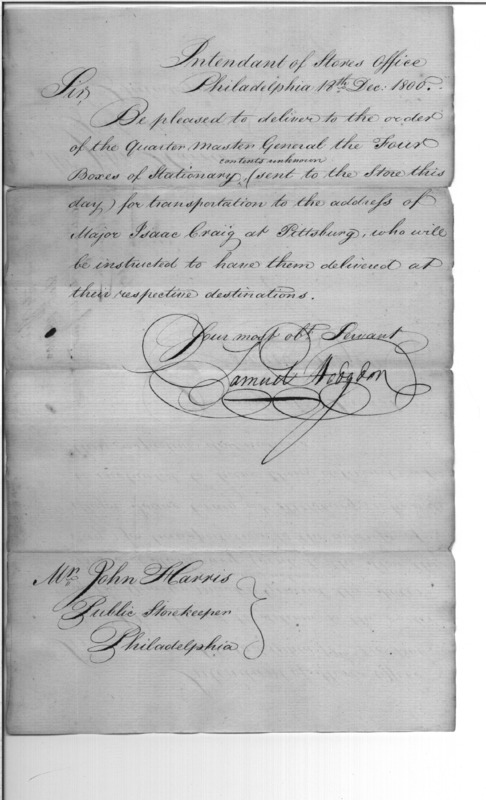 Intendant of Stores Office
Philadelphia 12th Dec: 1800.
Sir,
Be pleased to deliver to the order
of the Quarter Master General the Four
contents unknown
Boxes of Stationary, (sent to the Store this
day) for transportation to the address of
Major Isaac Craig at Pittsburg, who will
be instructed to have them delivered at
their respective destinations.
Your most obt Servant
Samuel Hodgdon
Mr. John Harris
Public Storekeeper
Philadelphia